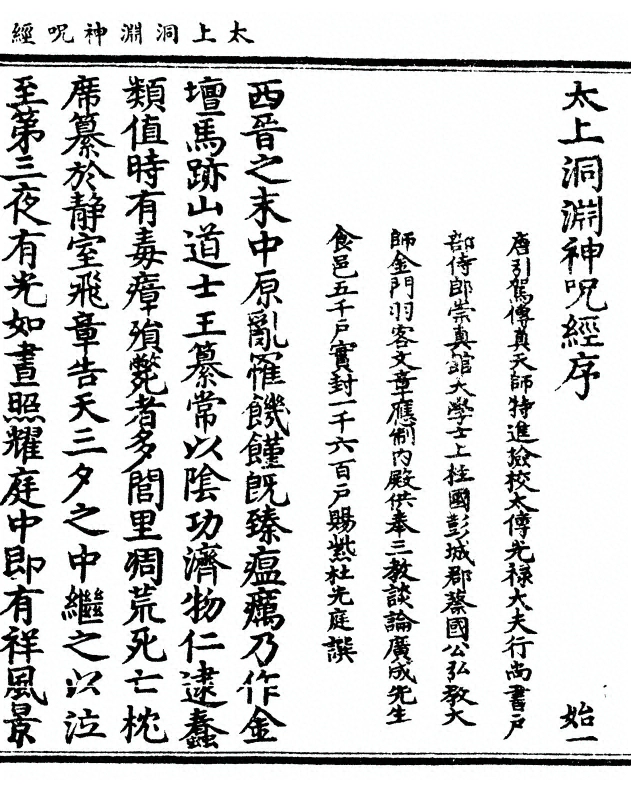 太上洞淵神呪經
太上洞淵神呪經序
始一
唐引駕傳真天師特進檢校太傅光祿大夫行尚書戶
部侍郎崇真館大學士上柱國彭城郡蔡國公弘教大
師金門羽客文章應制內殿供奉三教談論廣成先生
食邑五千戶實封一千六百戶賜紫杜光庭撰
西晉之末中原亂罹饑饉既臻瘟癘乃作金
壇馬跡山道士王纂常以陰功濟物仁逮蠢
類值時有毒瘴殞斃者多閭里凋荒死亡枕
席纂於靜室飛章告天三夕之中繼之以泣
至第三夜有光如晝照耀庭中即有祥風景